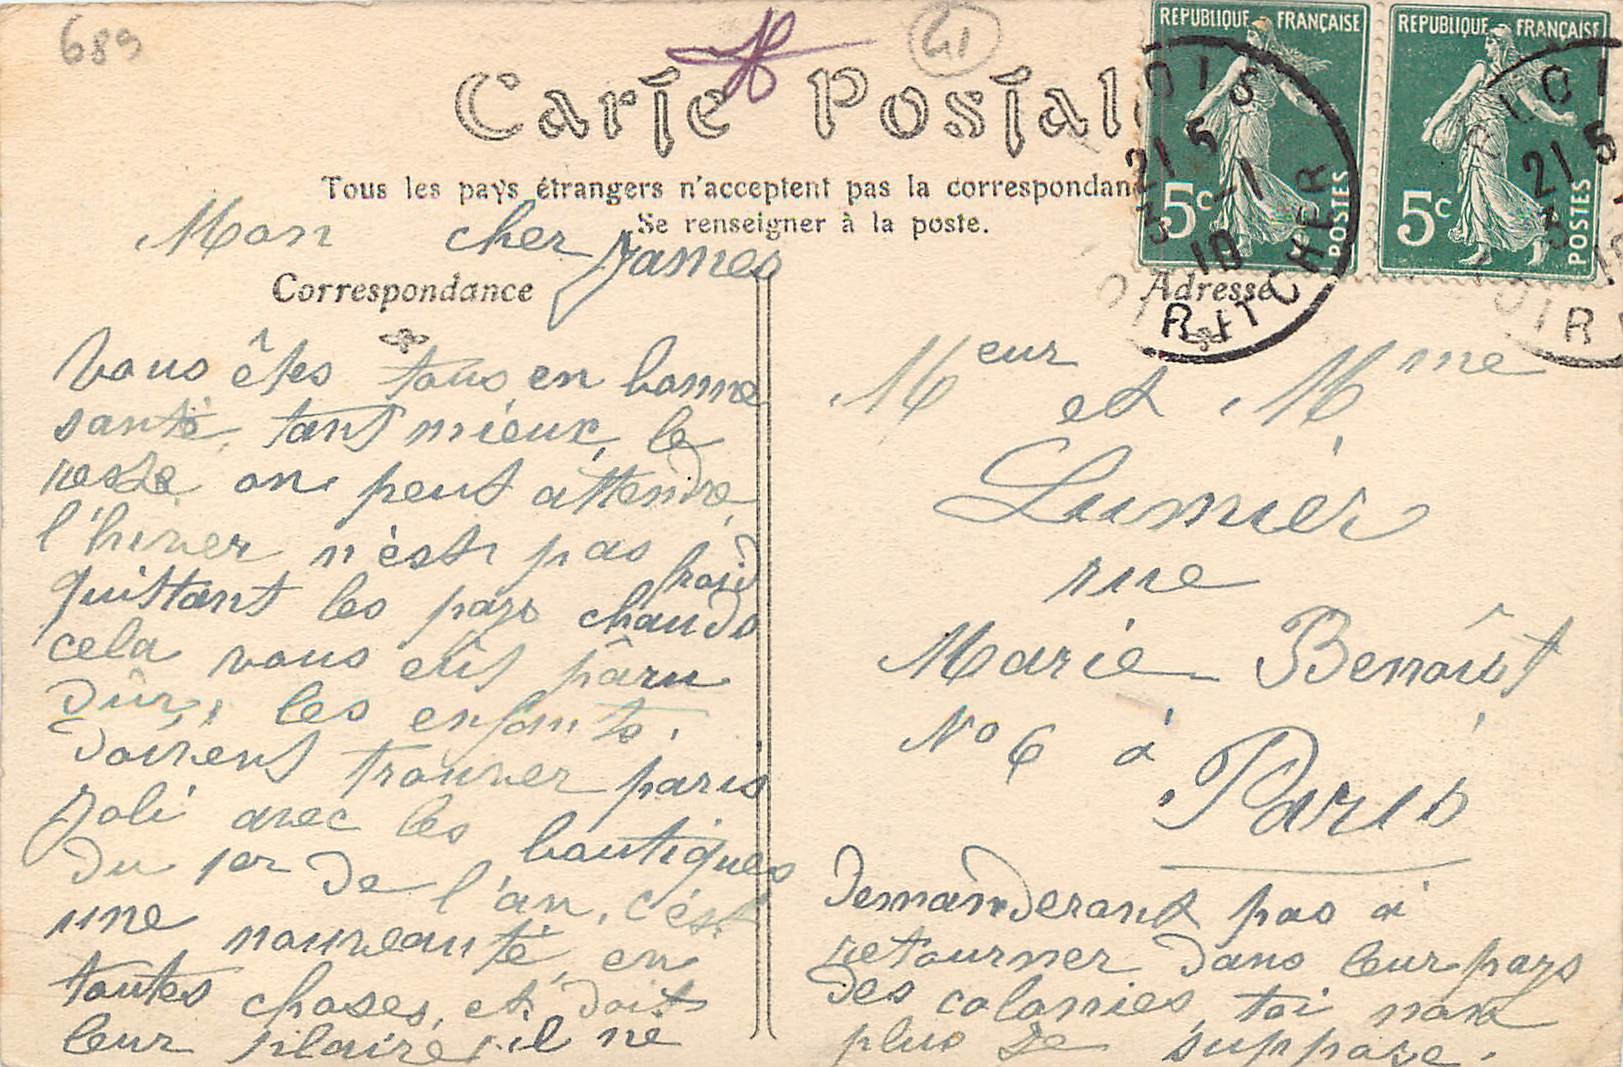 689
41
Carte Postale
RÉPUBLIQUE FRANÇAISE
5c
POSTES
RÉPUBLIQUE FRANÇAISE
5c
POSTES
OIS
21 5
3 -1
10
LOIR ET CHER
BLOI
21 5
3
10
OIR
Tous les pays étrangers n'acceptent pas la correspondan
Se renseigner à la poste.
Correspondance
Adresse
Mon cher James
Vous êtes tous en bonne
santé, tant mieux, le
reste on peut attendre,
l'hiver n'est pas froid
quittant les pays chauds
cela vous eut pâru
dûr, les enfants.
doivent trouver paris
Joli avec les boutiques
du 1er de l'an, c'est
une nouveauté, en
toutes choses, et doit
leur plaire, il ne
Meur et Mme
Lumièr
rue
Marie Benoîst
No 6 à
Paris
demanderont pas à
retourner dans leur pays
des colonies, toi non
plus je suppose.